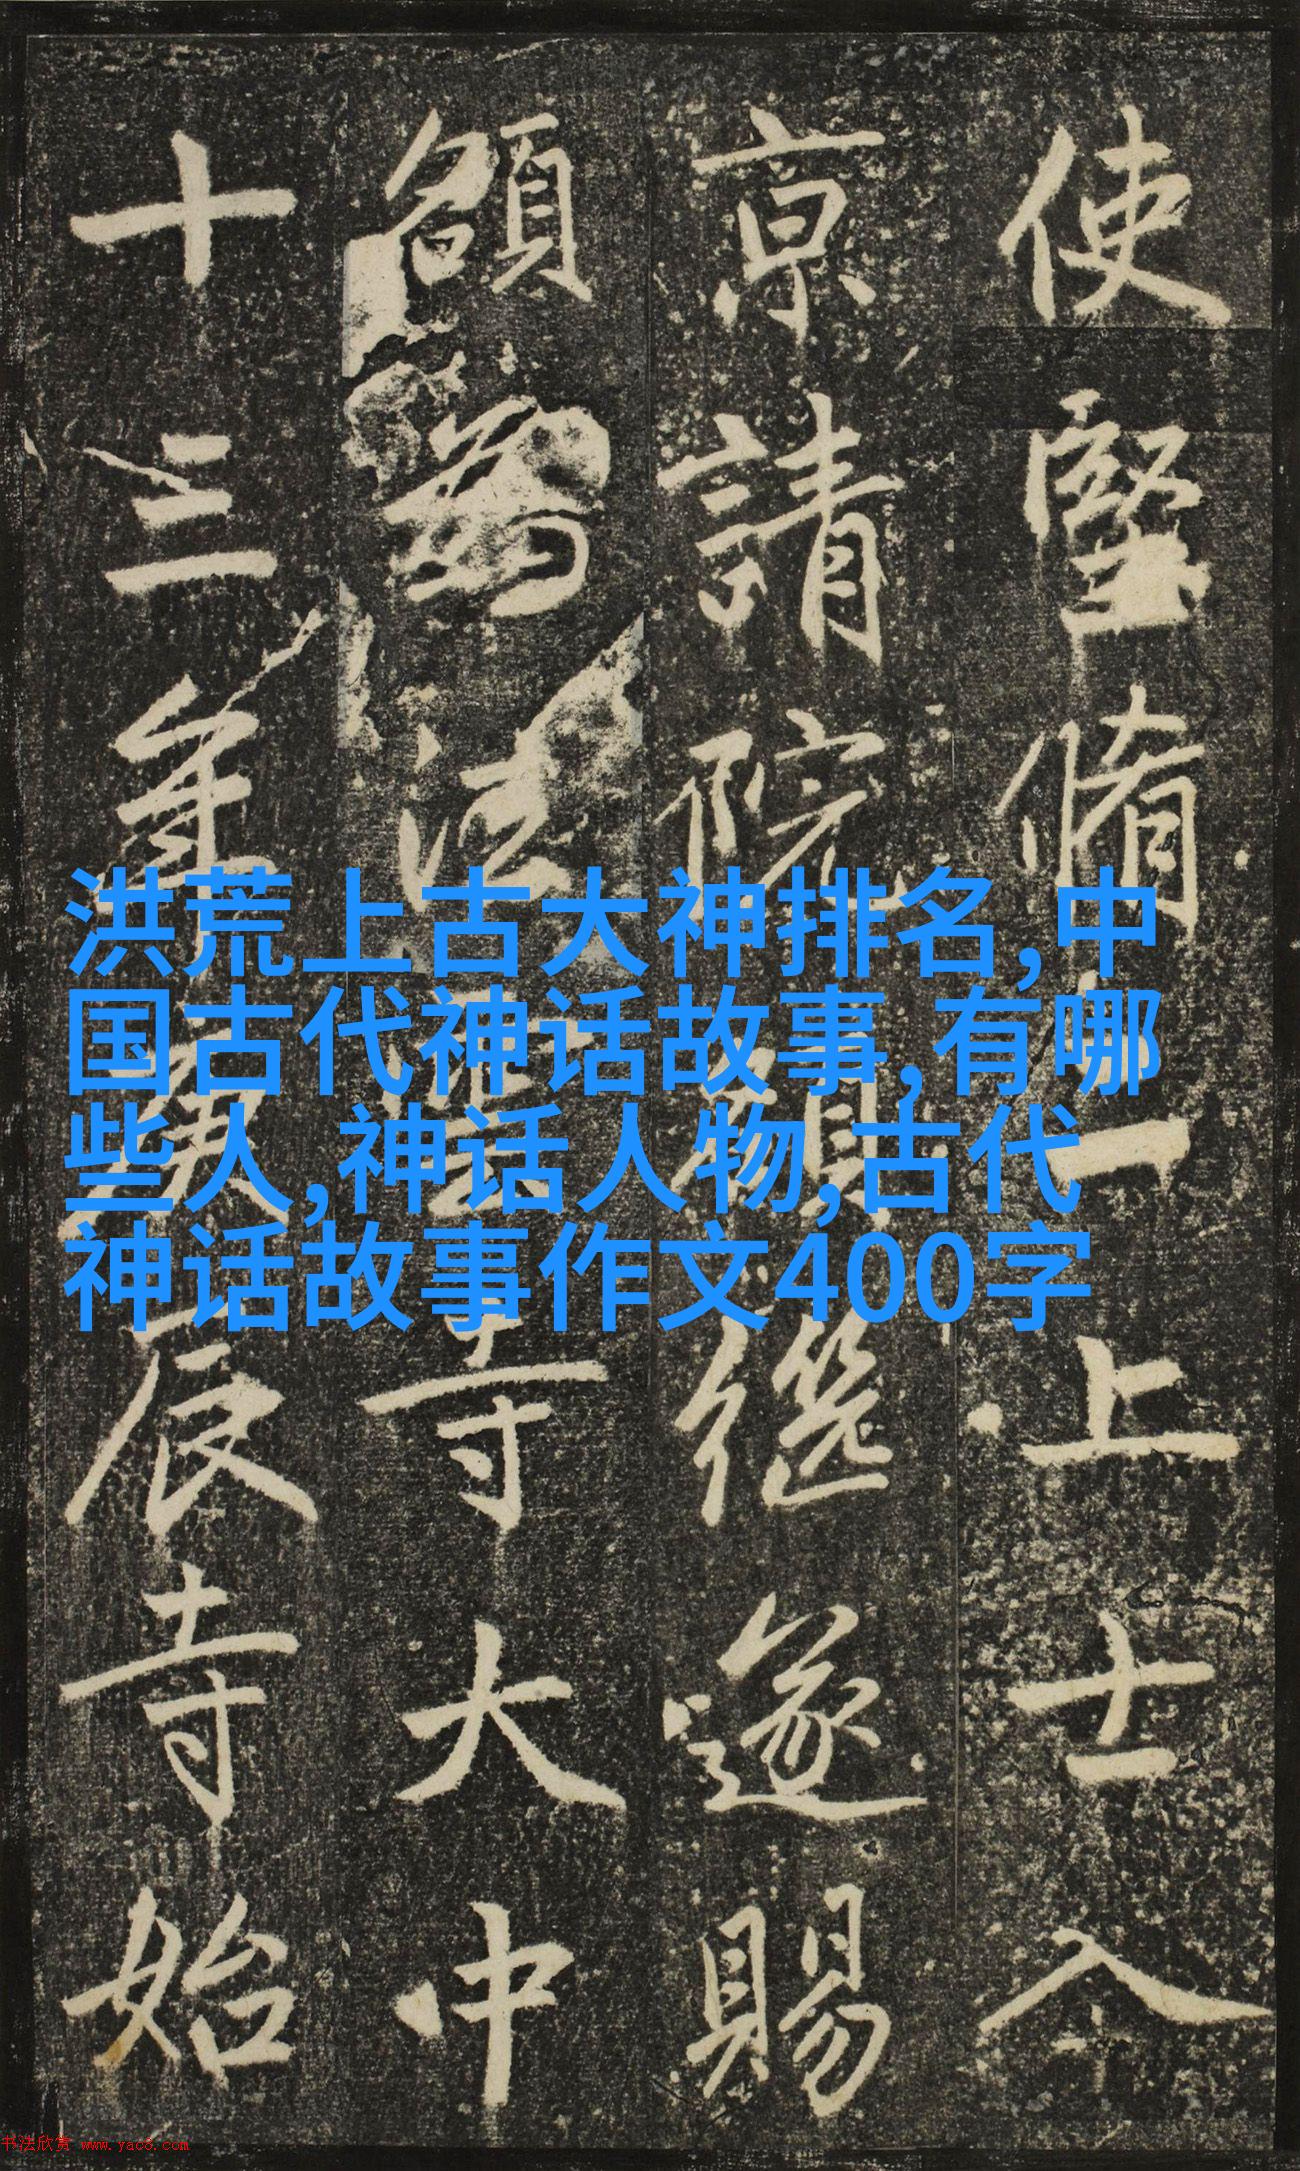 使堅脩一上士入
京請院額繼遂賜
額為法雲寺大中
十三年庚辰寺始
洪荒上古大神排名,中
国古代神话故事,有哪
些人,神话人物,古代
神话故事作文400字
书法欣赏 www.yac8.com